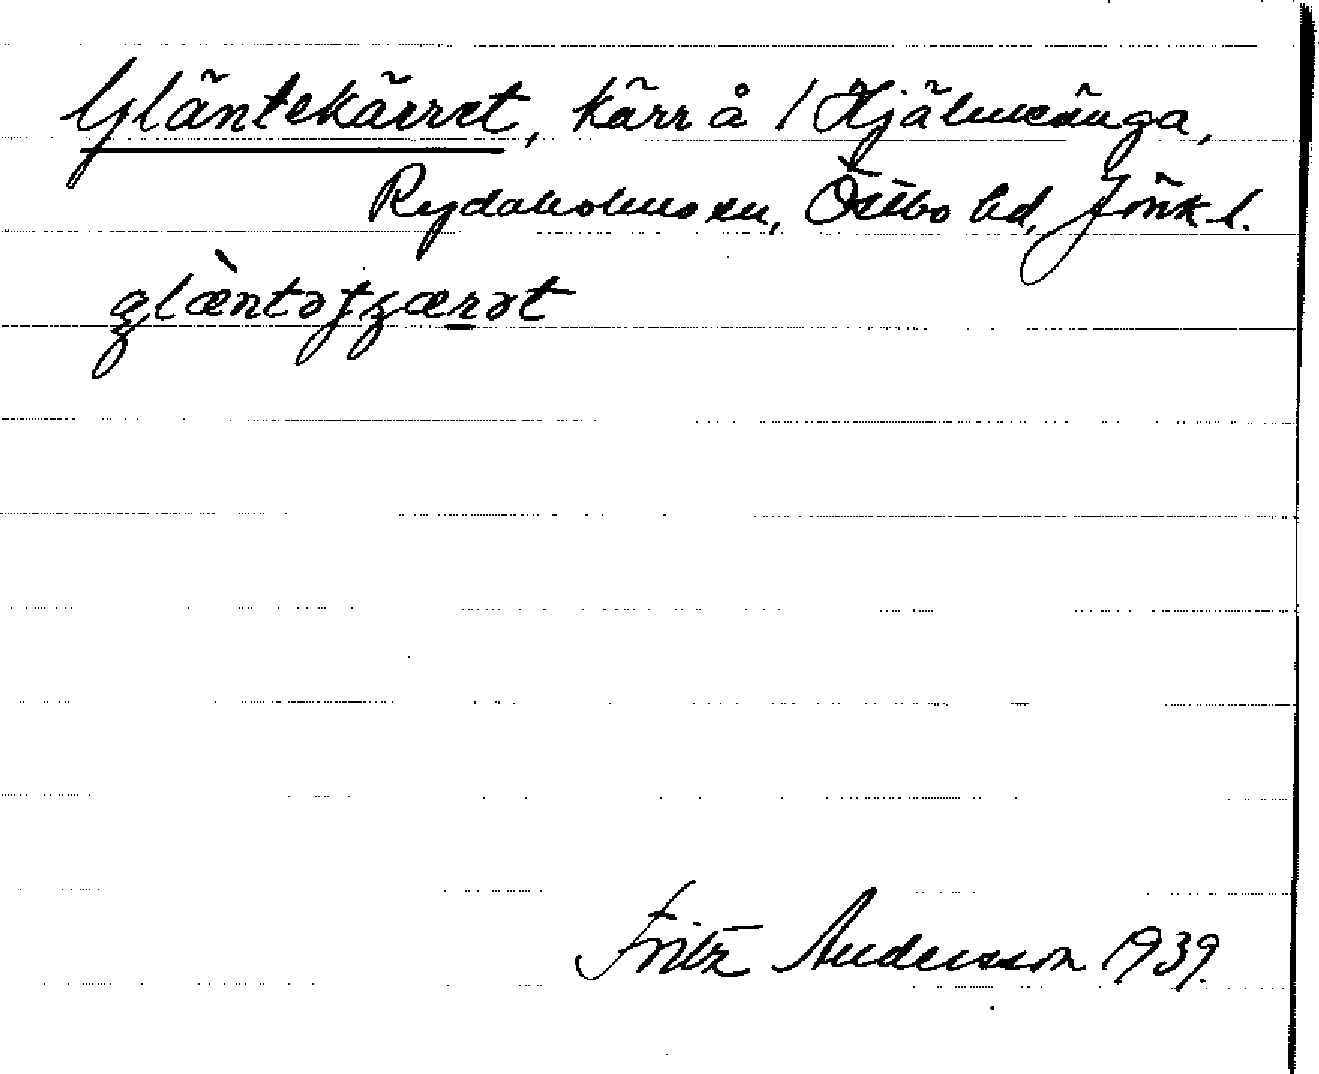 Gläntekärret, kärr å 1 Hjälmänga,
Rydaholms sn, Östbo hd, Jönk. l.
glæ̀ntəʃʒærət
Fritz Andersson 1939.